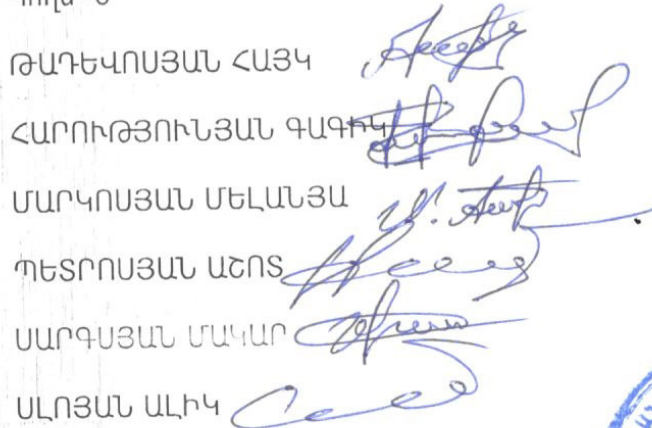 ԹԱԴԵՎՈՍՅԱՆ ՀԱՅԿ
ՀԱՐՈՒԹՅՈՒՆՅԱՆ ԳԱԳԻԿ
ՄԱՐԿՈՍՅԱՆ ՄԵԼԱՆՅԱ
ՊԵՏՐՈՍՅԱՆ ԱՇՈՏ
ՍԱՐԳՍՅԱՆ ՄԱԿԱՐ
ՍԼՈՅԱՆ ԱԼԻԿ